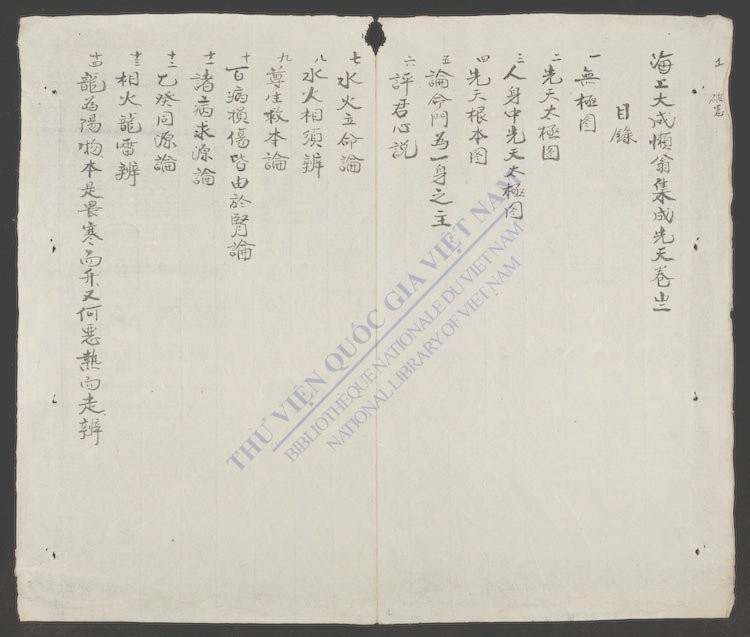 海上大成懶翁集成先天卷
目錄
一 無極图
二 先天太極图
三 人身中先天太極图
四 先天根本图
五 論命門為一身之主
六 評君心説
七 水火立命論
八 水火相須辨
九 尊生救本論
十 百病損傷皆由於腎論
十一 諸病求源論
十二 乙癸同源論
十三 相火龍雷辨
十四 龍為陽物本是畏寒而升又何惡熱而走辨
THƯ VIỆN QUỐC GIA VIỆT NAM
BIBLIOTHÈQUE NATIONALE DU VIETNAM
NATIONAL LIBRARY OF VIETNAM